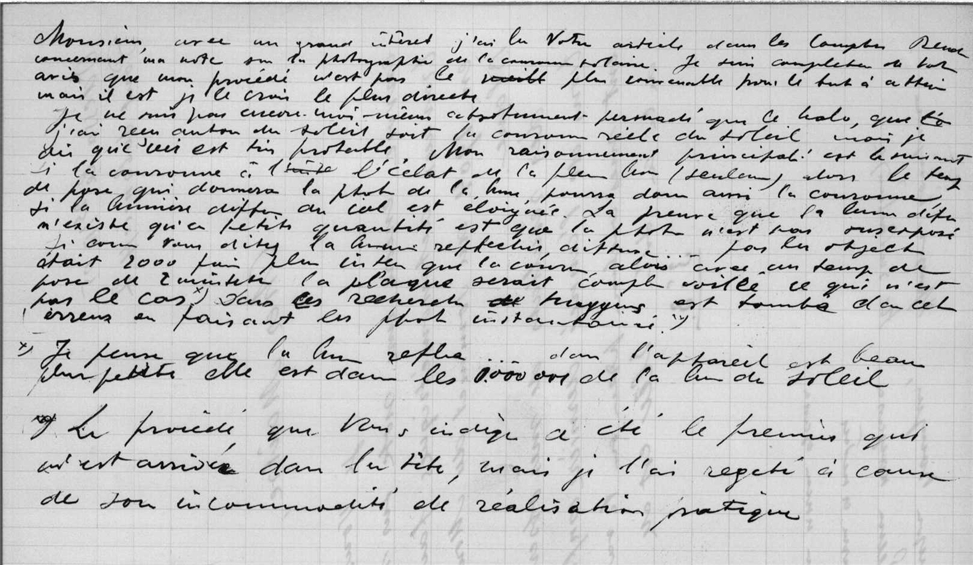 Monsieur, avec un grand intérêt j'ai lu Votre article dans les Comptes Rend
concernant ma note sur la photographie de la couronne solaire. Je suis complèten de Votr
avis que mon procédé n'est pas le plus convenable pour le but à attein
mais il est je le crois le plus directe
Je ne suis pas encore moi-même absolument persuadé que ce halo, que
j'ai reçu autour du soleil soit la couronne réelle du soleil mais je
dis que ceci est très probable. Mon raisonnement principal est le suivant
Si la couronne à l'éclat de la plein lun (seulem) alors le temp
de pose qui donnera la phot de la lune, pourra donn aussi la couronne,
si la lumière diffus du ciel est eloignée. La preuve que la lum difu
n'existe qu'en petits quantité est que la photo n'est pas surexposé
Si com Vous dites la lumi reflechie, diffus ... par les object
était 2000 fois plus inten que la couron, alors avec un temps de
pose de 2 minutes la plaque serait compl voilée ce qui n'est
pas le cas x) Dans les recherch Huggins est tombé dan cet
erreur en faisant les phot instantanné. xx)
x) Je pense que la lum reflec ... dans l'appareil est beau
plus petite elle est dans les 1.000 000 de la lum du soleil
xx) Le procédé que Vous indiqu a été le premier qui
m'est arrivé dans la tête, mais je l'ai regeté à cause
de son incommodité de réalisation pratique